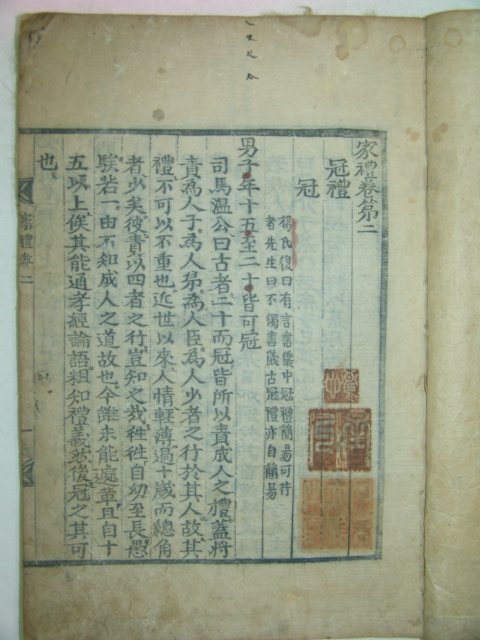 家禮卷第二
冠禮
冠
楊氏復曰有言書儀中冠禮簡易可行
者先生曰不獨書儀古冠禮亦自簡易
男子年十五至二十皆可冠
司馬溫公曰古者二十而冠皆所以責成人之禮蓋將
責為人子為人弟為人臣為人少者之行於其人故其
禮不可以不重也近世以來人情輕薄過十歲而總角
者少矣彼責以四者之行豈知之哉徃徃自幼至長愚
騃若一由不知成人之道故也今雖未能遽革且自十
五以上俟其能通孝經論語粗知禮義然後冠之其可
也
家禮卷二